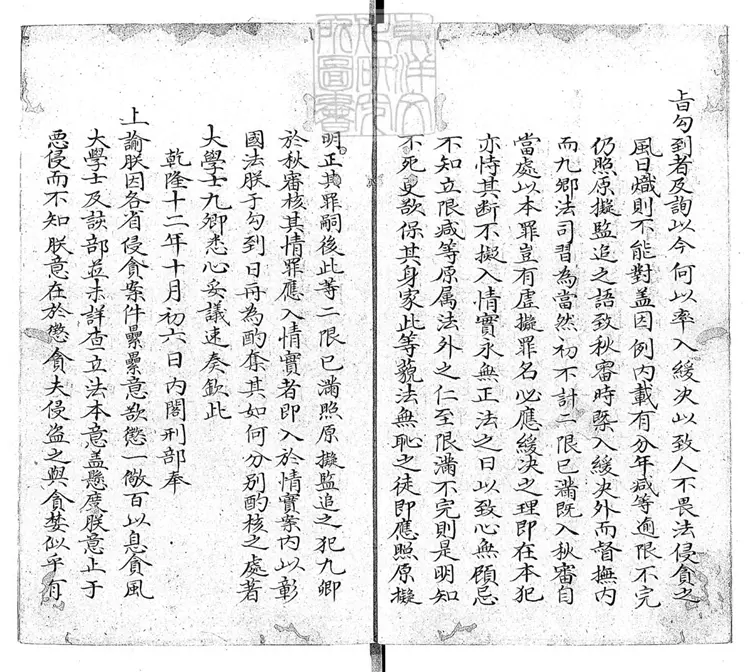 旨勾到者及詢以今何以率入緩决以致人不畏法侵貪之
風日熾則不能對盖因例內載有分年减等逾限不完
仍照原擬監追之語致秋審時槩入緩决外而督撫內
而九卿法司習為當然初不計二限已滿既入秋審自
當處以本罪豈有虛擬罪名必應緩决之理即在本犯
亦恃其断不擬入情實永無正法之日以致心無顧忌
不知立限减等原属法外之仁至限滿不完則是明知
不死更欲保其身家此等藐法無恥之徒即應照原擬
明正其罪嗣後此等二限已滿照原擬監追之犯九卿
於秋審核其情罪應入情實者即入於情實案內以彰
國法朕于勾到日再為酌奪其如何分別酌核之處著
大學士九卿悉心妥議速奏欽此
乾隆十二年十月初六日內閣刑部奉
上諭朕因各省侵貪案件纍纍意欲懲一儆百以息貪風
大學士及該部並未詳查立法本意盖懸度朕意止于
惡侵而不知朕意在於懲貪夫侵盗之與貪婪似乎有
東洋文化研究所圖書